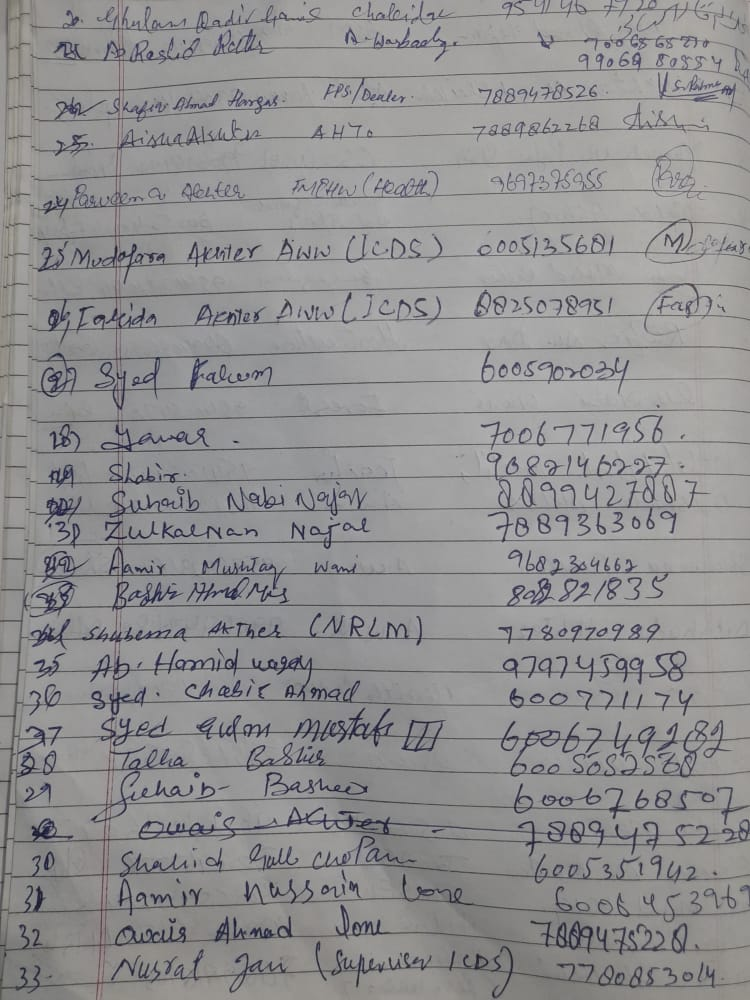 20. Ghulam Qadir Ganie
A. Rashid 7006565870
99068 80554
Shafiq Ahmad FPS/Dealer. 7889478526.
23. Aisha Akhter 7889862268
24 Parveena Akhter FMPHW (Health) 9697375955
25 Mudafara Akhter AWW (ICDS) 6005135681
Akhter AWW (ICDS) 8825078951
27 Syed 6005902034
28) Yawar. 7006771956.
29 Shabir. 9682146227.
Suhaib Nabi Najar 8899427887
31 Zulkalnan Najar 7889363069
32 Aamir Mushtaq Wani 9682304662
33 8082821835
Shubema Akther (NRLM) 7780970989
35 Ab. Hamid 9797459958
36 Syed. Shabir Ahmad 600771174
37 Syed Gulm Mustafa 6006749282
38 Talha Bashir 6005052568
29 Suhaib Basheer 6006768507
Owais Akhter - 7889475228
30 Shahid Chopan 6005351942.
31 Aamir Hussain Lone 6006453969
32 Owais Ahmad Lone 7889475228.
33. Nusrat Jan (Supervisor ICDS) 7780853014.